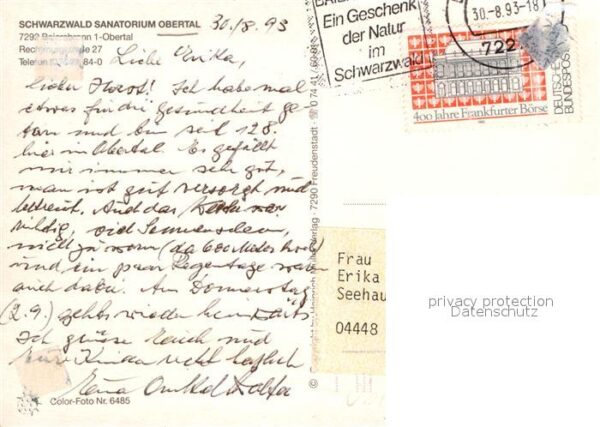 SCHWARZWALD SANATORIUM OBERTAL
7290 Baiersbronn 1-Obertal
Rechtmurgstraße 27
Telefon 84-0
30./8. 93
Liebe Erika,
lieber Horst! Ich habe mal
etwas für die Gesundheit ge-
tan und bin seit 12.8.
hier in Obertal. Es gefällt
mir immer sehr gut,
man ist gut versorgt und
betreut. Auch das Wetter war
richtig, viel Sonnenschein,
nicht zu warm (da 600 Meter hoch)
und ein paar Regentage waren
auch dabei. Am Donnerstag
(2.9.) gehts wieder heimwärts
Ich grüsse Euch und
Eure Kinder recht herzlich
Color-Foto Nr. 6485
© Copyright by Heinrich Müller Verlag · 7290 Freudenstadt · 0 74 41 / 60
Ein Geschenk
der Natur
im
Schwarzwald
30.-8.93-18
722
400 Jahre Frankfurter Börse
DEUTSCHE
BUNDESPOST
Frau
Erika
Seehau
04448
privacy protection
Datenschutz